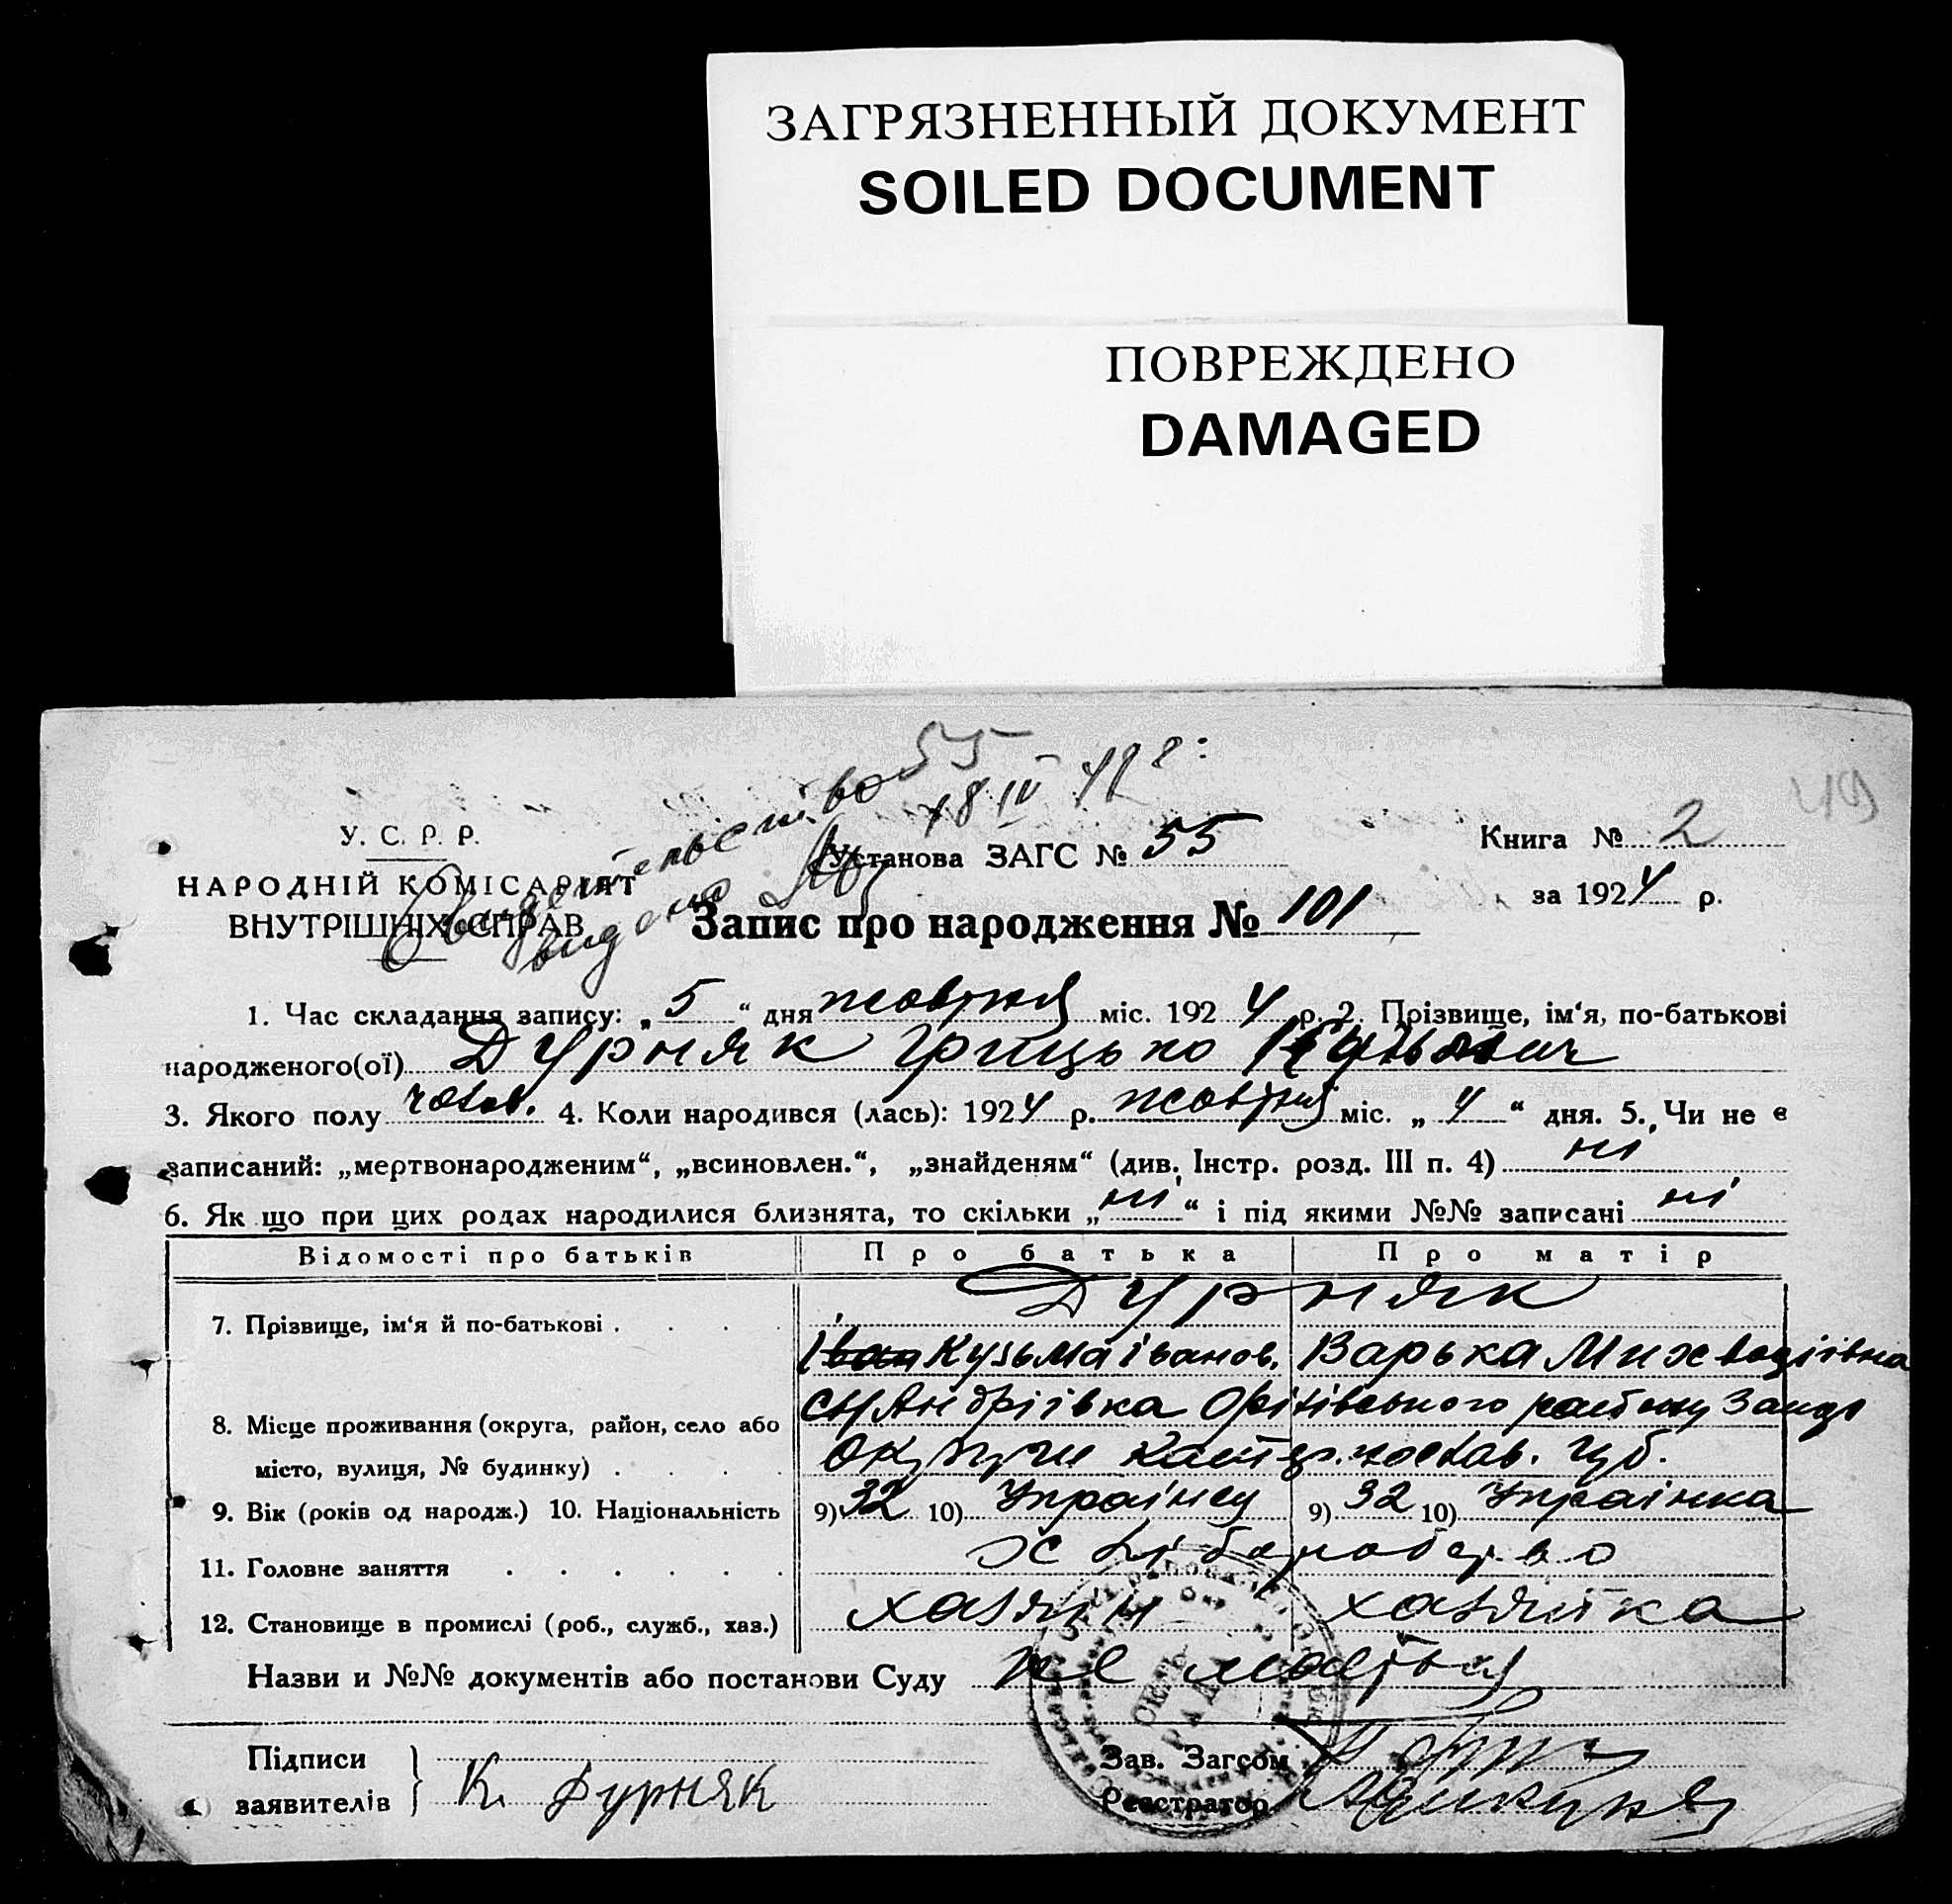 ЗАГРЯЗНЕННЫЙ ДОКУМЕНТ
SOILED DOCUMENT
ПОВРЕЖДЕНО
DAMAGED
55
18 IV
49
У. С. Р. Р.
Установа ЗАГС № 55
Книга № 2
НАРОДНІЙ КОМІСАРІЯТ
за 1924 р.
ВНУТРІШНІХ СПРАВ
Запис про народження № 101
1. Час складання запису: „5“ дня жовтня міс. 1924 р. 2. Прізвище, ім‘я, по-батькові
народженого(ої) Дурняк Грицько
3. Якого полу чолов. 4. Коли народився (лась): 1924 р. жовтня міс. „4“ дня. 5. Чи не є
записаний: „мертвонародженим“, „всиновлен.“, „знайденям“ (див. Інстр. розд. III п. 4) ні
6. Як що при цих родах народилися близнята, то скільки „ні“ і під якими №№ записані ні
Відомості про батьків Про батька Про матір
Дурняк
7. Прізвище, ім‘я й по-батькові
Іван Кузьма Іванов. Варька
Андріївка
8. Місце проживання (округа, район, село або
місто, вулиця, № будинку)
округи
9. Вік (років од народж.) 10. Національність 9) 32 10) Українец 9) 32 10) Українка
11. Головне заняття
12. Становище в промислі (роб., служб., хаз.) хазяїн хазяйка
Назви и №№ документів або постанови Суду не мається
Підписи
заявителів
К. Дурняк
Зав. Загсом
Реєстратор